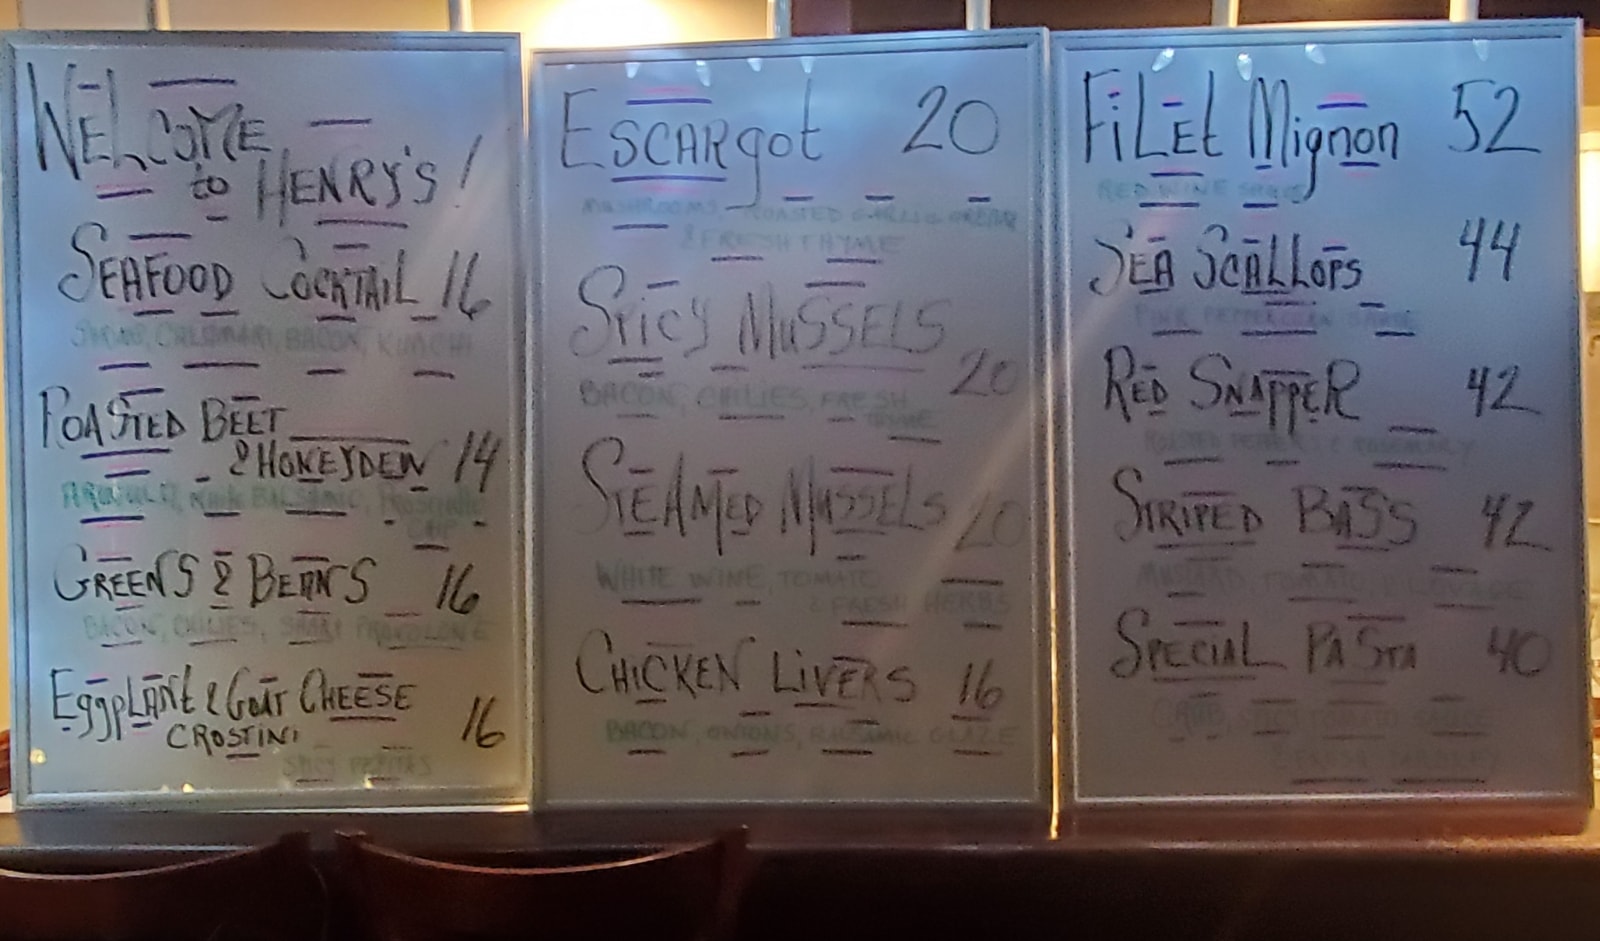 WELCOME
to HENRY'S!
SEAFOOD COCKTAIL 16
SHRIMP, CALAMARI, BACON, KIMCHI
ROASTED BEET
& HONEYDEW 14
BALSAMIC,
GREENS & BEANS 16
BACON, CHILIES, SHARP PROVOLONE
EggPLANt & GOAT CHEESE
CROSTINI 16
ESCARgot 20
MUSHROOMS, ROASTED GARLIC CREAM
& FRESH THYME
SPICY MUSSELS
20
BACON, CHILIES, FRESH
STEAMED MUSSELS 20
WHITE WINE, TOMATO
& FRESH HERBS
CHICKEN LIVERS 16
BACON, ONIONS, BALSAMIC GLAZE
FiLEt Mignon 52
RED WINE SAUCE
SEA SCALLOPS 44
PINK PEPPERCORN SAUCE
RED SNAPPER 42
ROASTED PEPPER & ROSEMARY
STRIPED BASS 42
MUSTARD, TOMATO,
SPECIAL PASTA 40
CRAB, SPICY TOMATO SAUCE